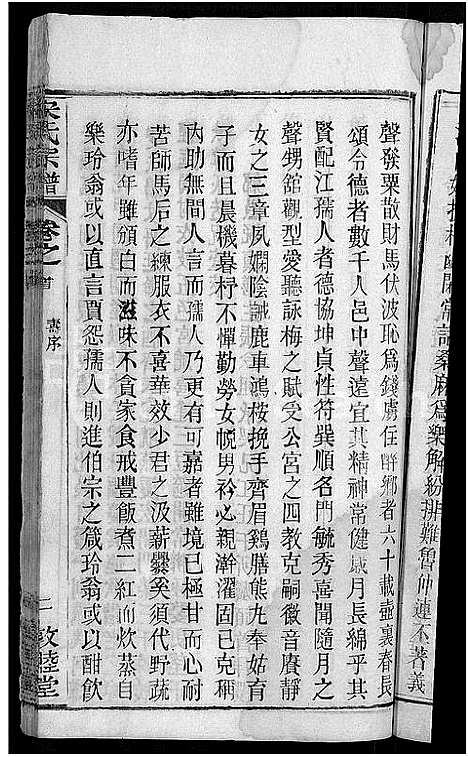 桑麻為樂解紛排難魯仲連不著義
聲發粟散財馬伏波恥為錢虜住醉鄉者六十載壺裏春長
頌令德者數千人邑中聲遠宜其精神常健歲月長綿乎其
賢配江孺人者德協坤貞性符巽順名門毓秀喜聞隨月之
聲甥館觀型愛聽詠梅之賦受公宮之四教克嗣徽音賡靜
女之三章夙嫻陰誡鹿車鴻桉挽手齊眉鷄膳熊九奉姑育
子而且晨機暮杼不憚勤勞女帨男衿必親澣濯固已克稱
內助無間人言而孺人乃更有可嘉者雖境已極甘而心耐
苦師馬后之練服衣不喜華效少君之汲薪爨奚須代野蔬
亦嗜年雖頒白而滋味不貪家食戒豐飯煮二紅而炊蒸自
樂玲翁或以直言賈怨孺人則進伯宗之箴玲翁或以酣飲
宋氏宗譜
卷之首
壽序
二
敦睦堂